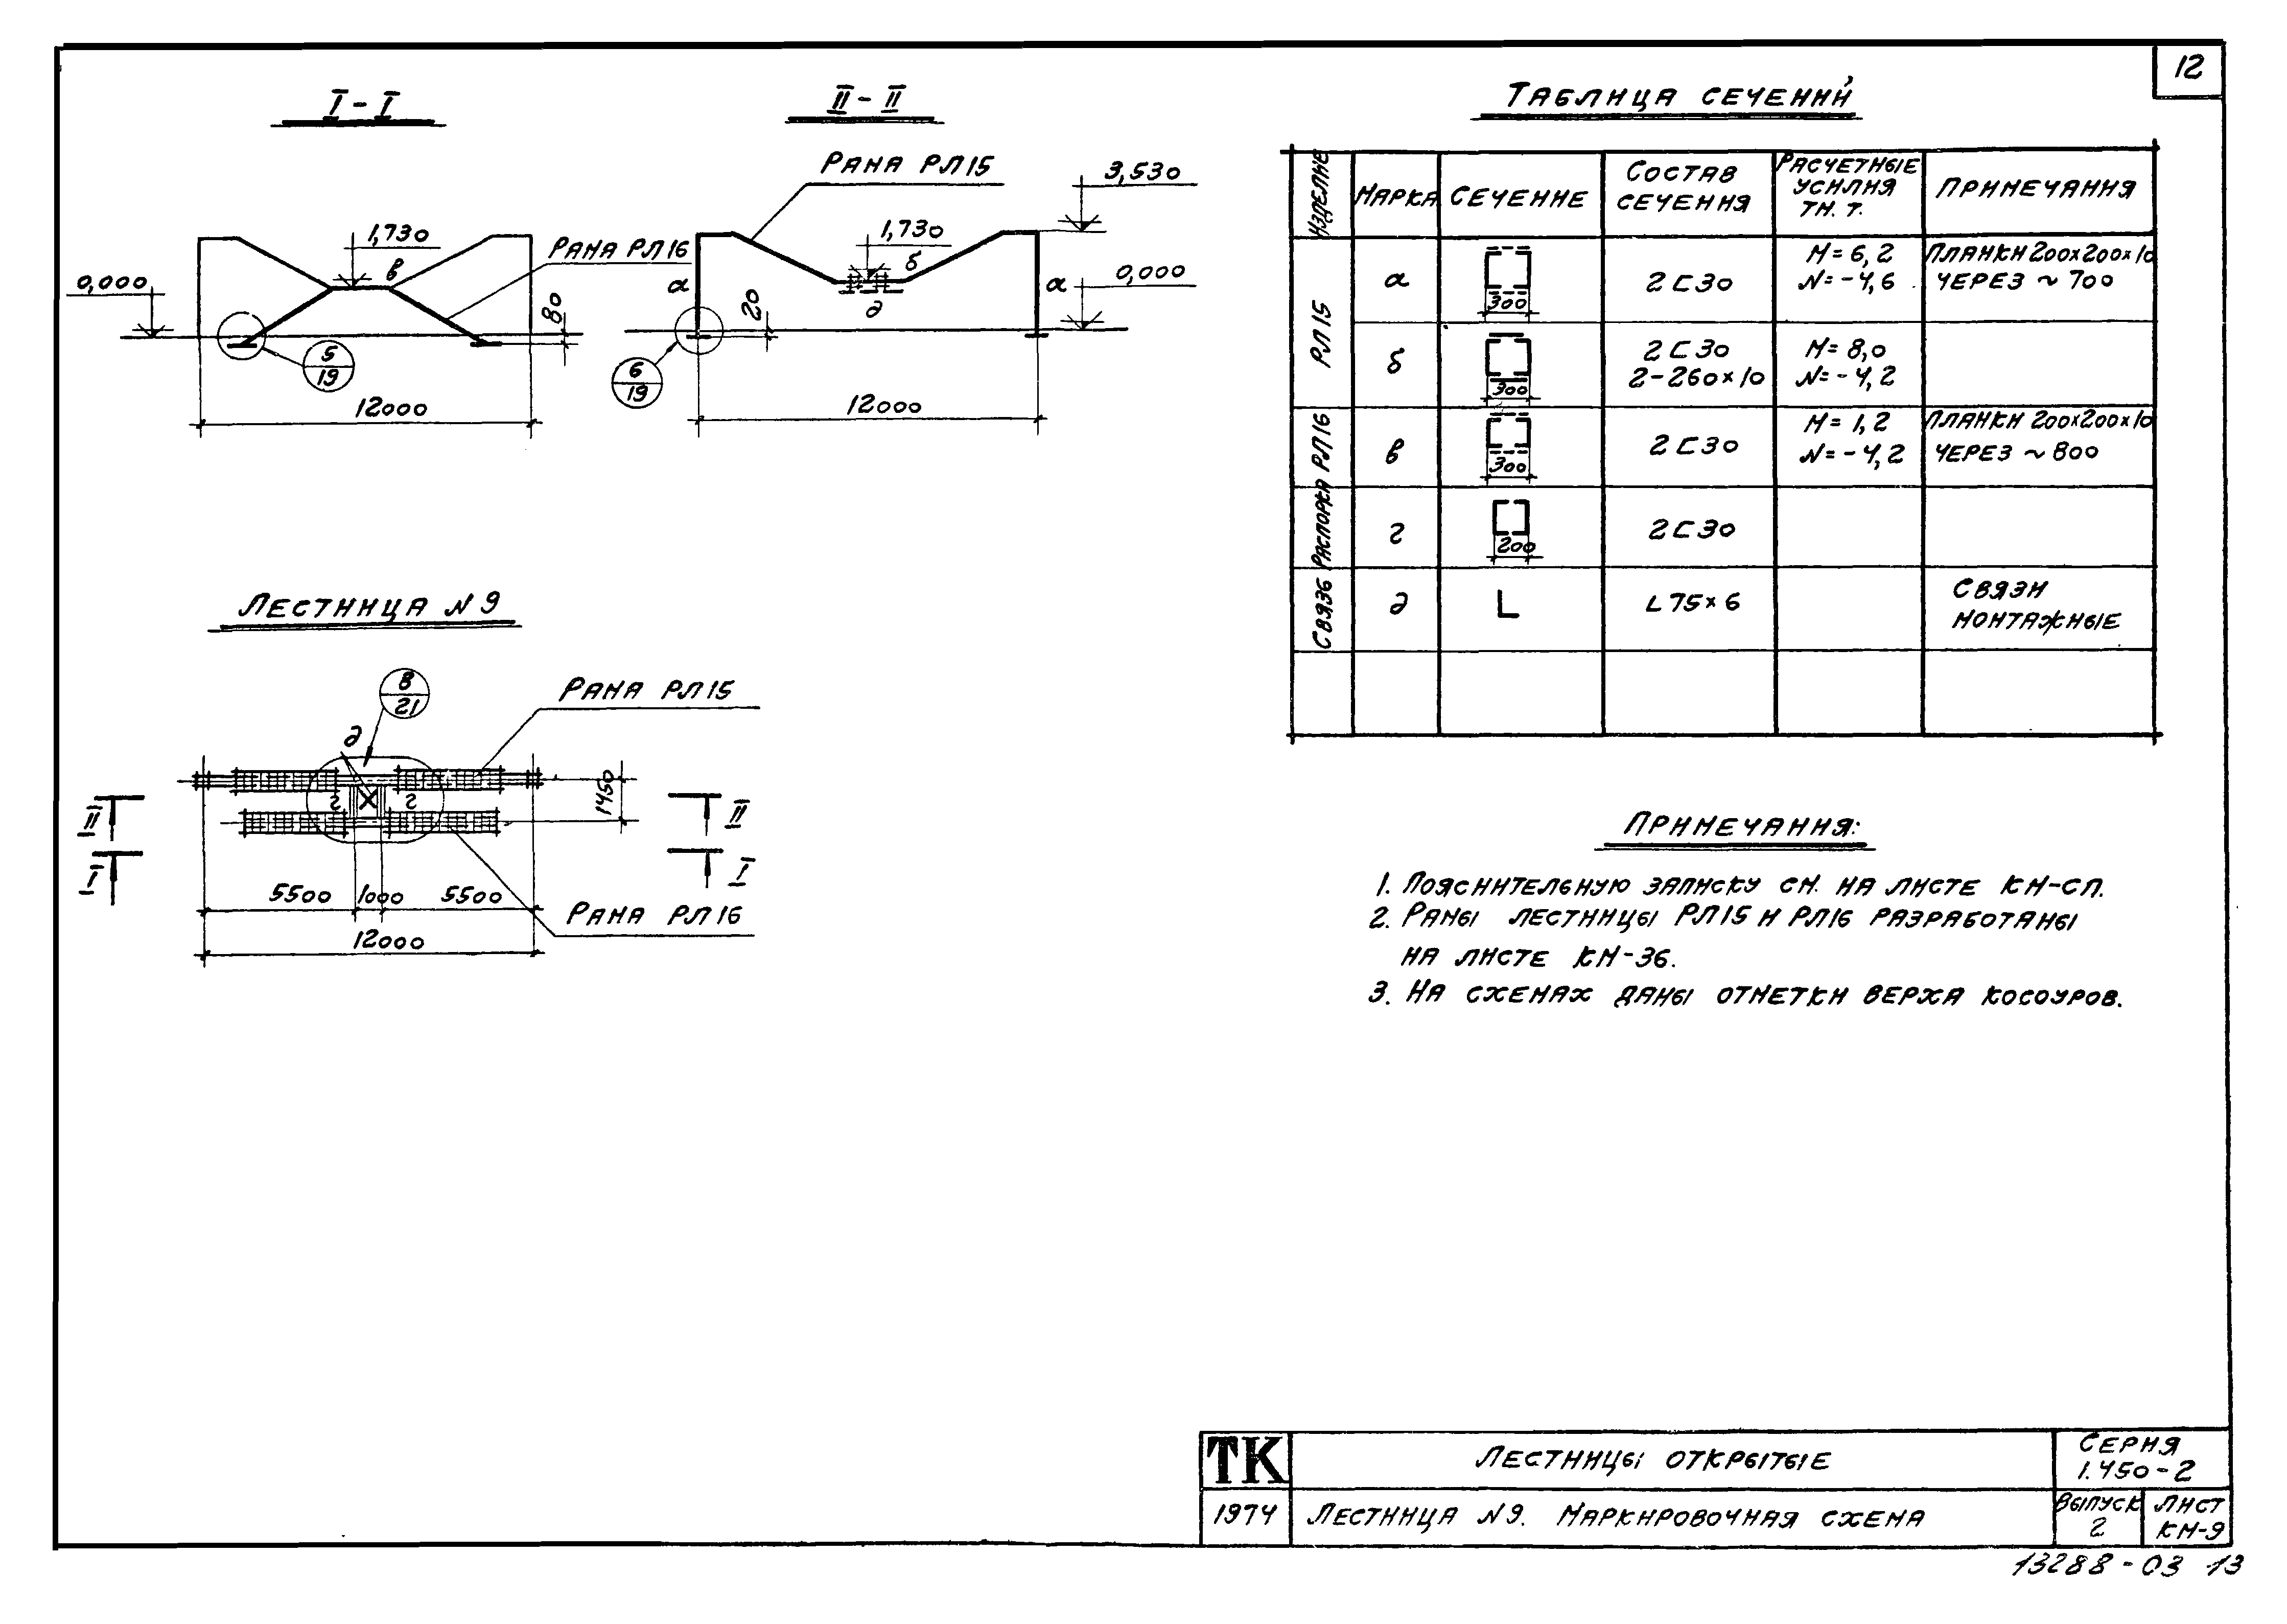 12
I - I
II - II
Рама РЛ15
3,530
1,730
1,730
б
Рама РЛ16
в
0,000
0,000
а
а
д
20
80
5
19
6
19
12000
12000
Лестница N 9
8
21
Рама РЛ15
д
г
г
1450
II
II
I
I
5500
1000
5500
Рама РЛ16
12000
Таблица сечений
Изделие
Марка
Сечение
Состав
сечения
Расчетные
усилия
тм. т.
Примечания
РЛ15
а
300
2 С 30
М = 6,2
N = -4,6
Планки 200×200×10
через ~ 700
б
300
2 С 30
2-260×10
М = 8,0
N = -4,2
РЛ16
в
300
2 С 30
М = 1,2
N = -4,2
Планки 200×200×10
через ~ 800
Распорка
г
200
2 С 30
Связь
д
L
L 75×6
Связи
монтажные
Примечания:
1. Пояснительную записку см. на листе КМ-СП.
2. Рамы лестницы РЛ15 и РЛ16 разработаны
на листе КМ-36.
3. На схемах даны отметки верха косоуров.
ТК
Лестницы открытые
Серия
1.450-2
1974
Лестница N9. Маркировочная схема
Выпуск
2
Лист
КМ-9
13288-03 13